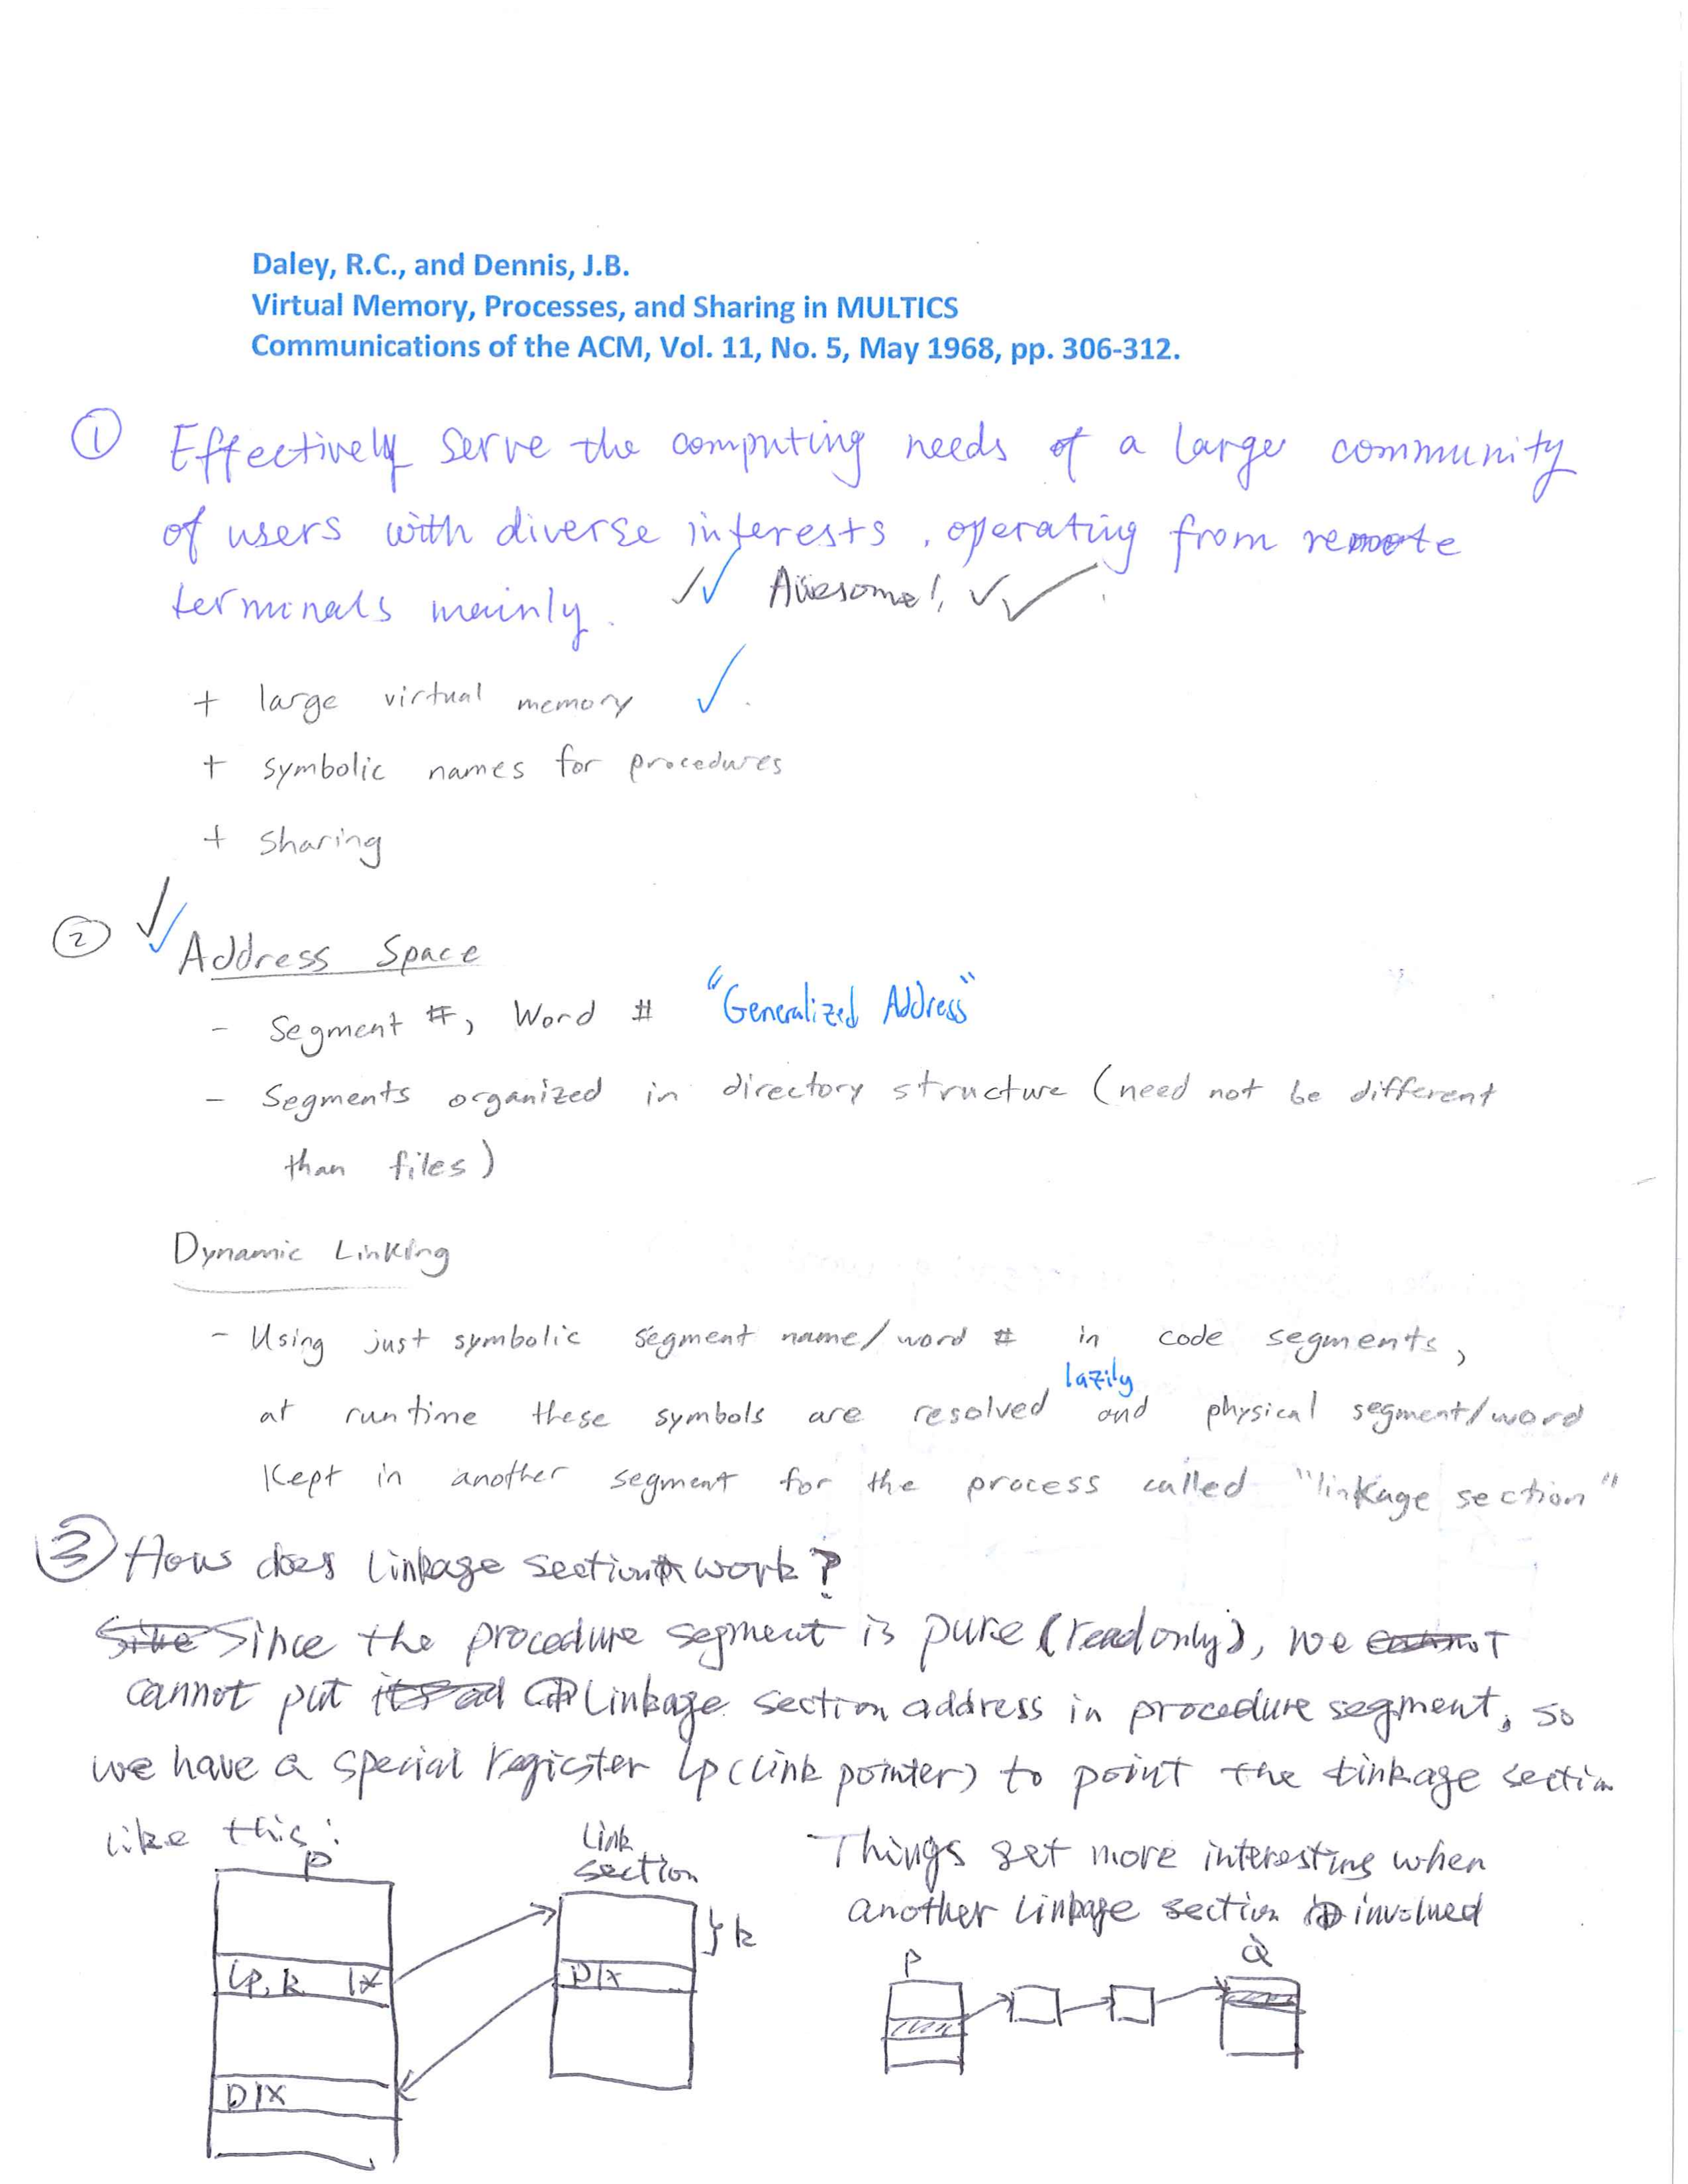 Daley, R.C., and Dennis, J.B.
Virtual Memory, Processes, and Sharing in MULTICS
Communications of the ACM, Vol. 11, No. 5, May 1968, pp. 306-312.
① Effectively serve the computing needs of a large community
of users with diverse interests, operating from remote
terminals mainly. Awesome!
+ large virtual memory
+ symbolic names for procedures
+ sharing
② Address Space
- Segment #, Word # "Generalized Address"
- Segments organized in directory structure (need not be different
than files)
Dynamic Linking
- Using just symbolic segment name/word # in code segments,
lazily
at runtime these symbols are resolved and physical segment/word
kept in another segment for the process called "linkage section"
③ How does linkage section work?
Since the procedure segment is pure (read only), we
cannot put linkage section address in procedure segment, so
we have a special register lp (link pointer) to point the linkage section
like this:
P
Link
section
} k
lp, k |*
D|x
D|X
Things get more interesting when
another linkage section is involved
P
Q